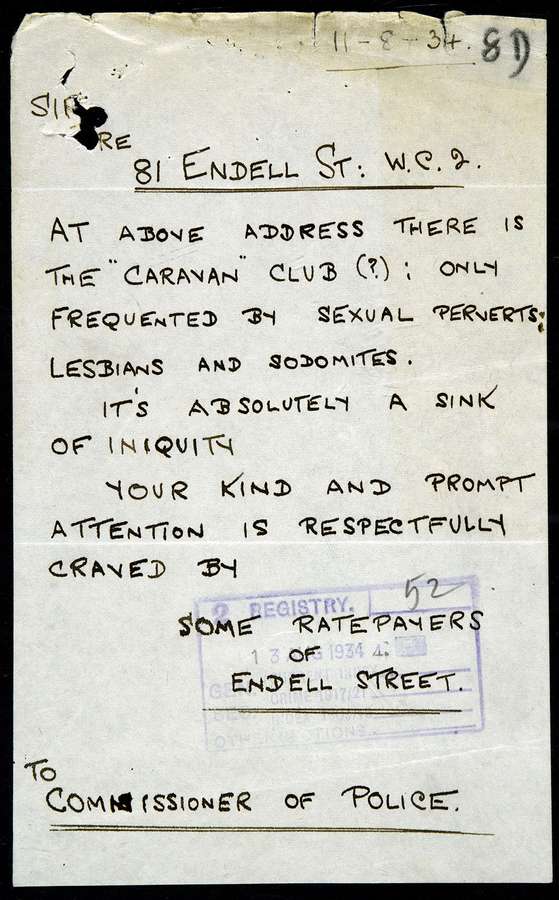 11-8-34. 8D
SIR
RE
81 ENDELL ST: W.C.2.
AT ABOVE ADDRESS THERE IS
THE "CARAVAN" CLUB (?); ONLY
FREQUENTED BY SEXUAL PERVERTS,
LESBIANS AND SODOMITES.
IT'S ABSOLUTELY A SINK
OF INIQUITY
YOUR KIND AND PROMPT
ATTENTION IS RESPECTFULLY
CRAVED BY
52
REGISTRY.
SOME RATEPAYERS
1934
OF
ENDELL STREET.
TO
COMMISSIONER OF POLICE.